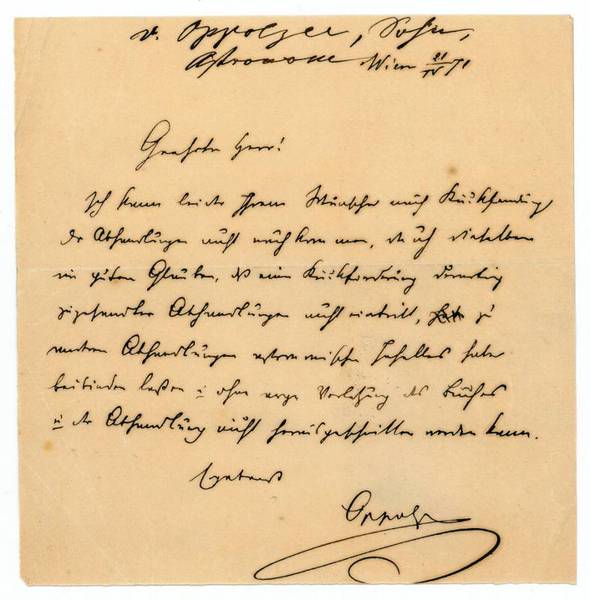 v. Oppolzer, Sohn,
Astronom Wien 21/IV 71
Geehrter Herr!
Ich kann leider Ihrem Wunsche nach Rücksendung
der Abhandlungen nicht nachkommen, da ich dieselben
im guten Glauben, daß eine Rückforderung derartig
zugesandter Abhandlungen nicht eintritt, zu
anderen Abhandlungen astronomischen Inhaltes habe
beibinden laßen u ohne arge Verletzung des Buches
u der Abhandlung nicht herausgeschnitten werden kann.
Ergebenst
Oppolzer